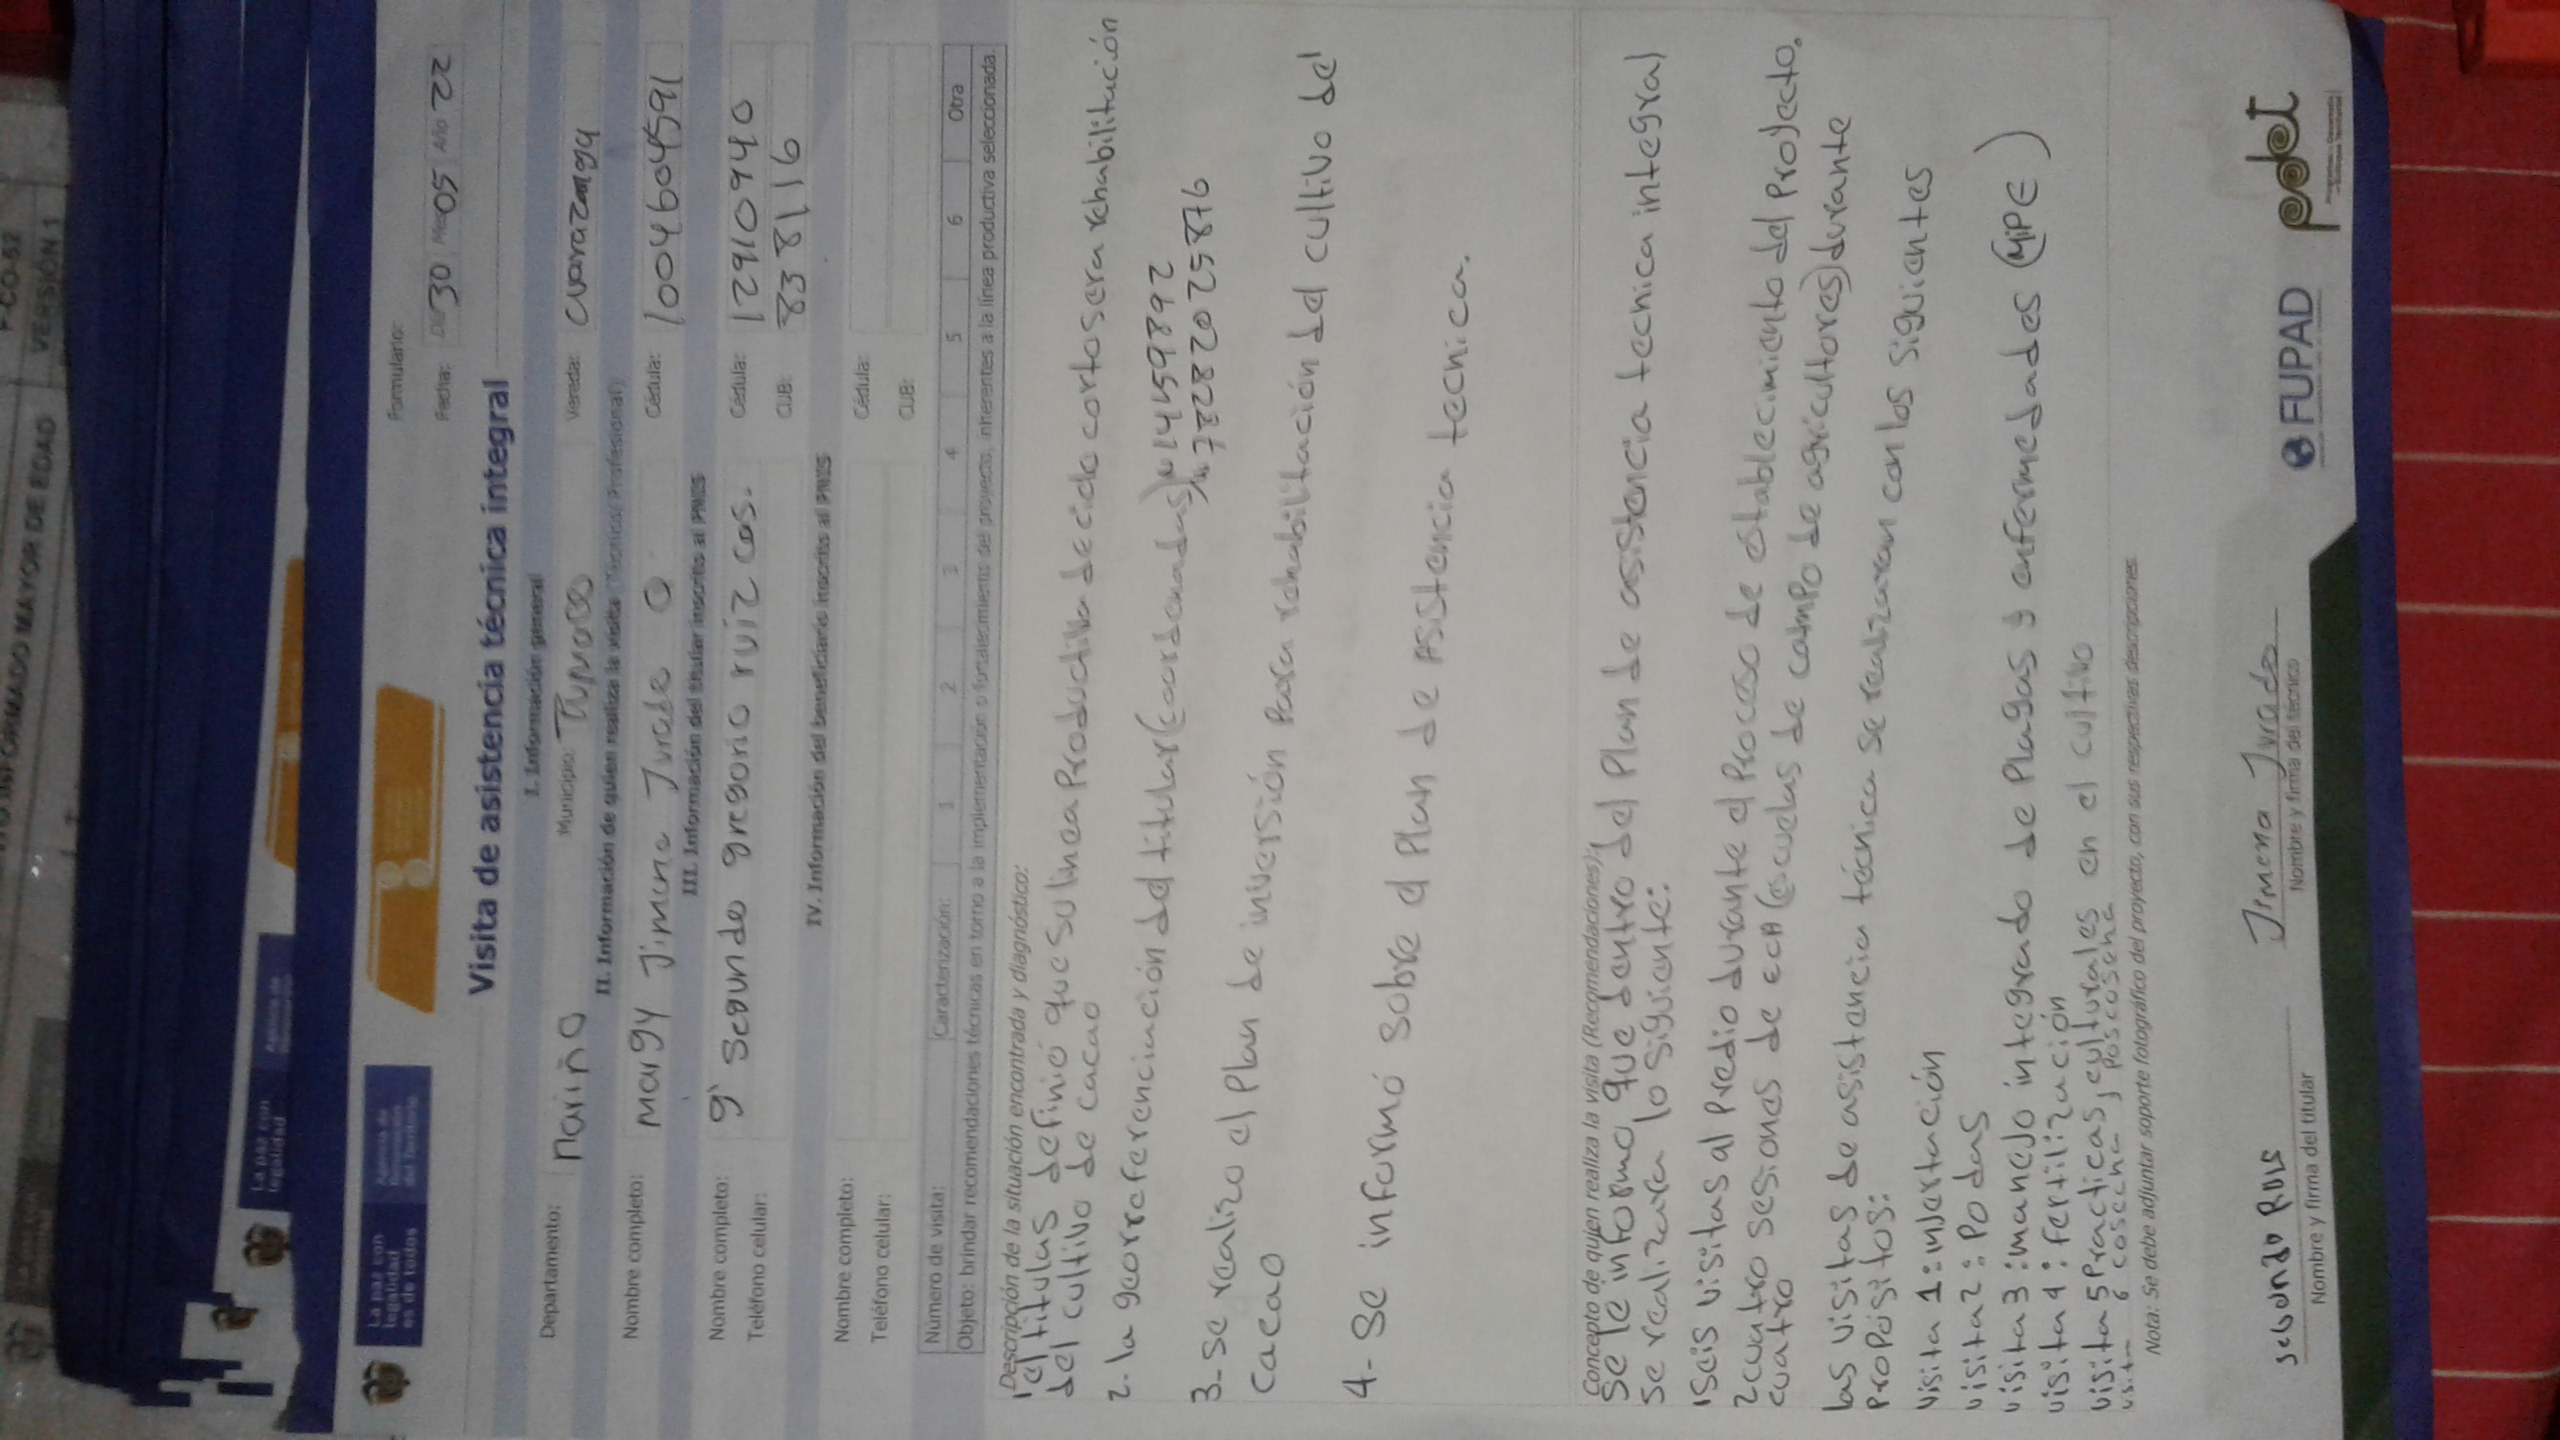 F-CO-52
VERSIÓN 1
INFORMADO MAYOR DE EDAD
La paz con
legalidad
La paz con
legalidad
es de todos
Agencia de
Renovación
del Territorio
Formulario:
Fecha: Día 30 Mes 05 Año 22
Visita de asistencia técnica integral
I. Información general
Departamento: nariño Municipio: Tumaco Vereda:
II. Información de quien realiza la visita (Técnico/Profesional)
Nombre completo: Margy Jimena Jurado O Cédula: 1004604591
III. Información del titular inscrito al PNIS
Nombre completo: segundo gregorio ruiz cos. Cédula: 12910940
Teléfono celular: CUB: 838116
IV. Información del beneficiario inscrito al PNIS
Nombre completo: Cédula:
Teléfono celular: CUB:
Número de visita: Caracterización: 1 2 3 4 5 6 Otra
Objeto: brindar recomendaciones técnicas en torno a la implementación o fortalecimiento del proyecto, inherentes a la línea productiva seleccionada.
Descripción de la situación encontrada y diagnóstico:
1 el titulas definió que su linea de ciclo corto sera rehabilitación
del cultivo de cacao
2. la georreferenciación del titular (coordenadas) N 1.4459892
W 78.82025876
3- se realizo el Plan de inversión Para rehabilitación del cultivo de
cacao
4- Se informó sobre el Plan de ASistencia tecnica.
Concepto de quien realiza la visita (Recomendaciones):
Se le informo que dentro del Plan de asistencia tecnica integral
se realizara lo siguiente:
1 Seis visitas al Predio durante el Proceso de establecimiento del Proyecto.
2 cuatro sesiones de ECA (escuelas de camPo de agricultores) durante
cuatro
las visitas de asistencia técnica se realizaran con los siguientes
ProPositos:
visita 1: injertación
visita 2: Podas
visita 3: manejo integrado de Plagas y enfermedades (MiPE)
visita 4: fertilización
visita 5 Practicas culturales en el cultivo
visita 6 cosecha y Poscosecha
Nota: Se debe adjuntar soporte fotográfico del proyecto, con sus respectivas descripciones.
segundo Ruis
Nombre y firma del titular
Jimena Jurado
Nombre y firma del técnico
FUPAD
pdet